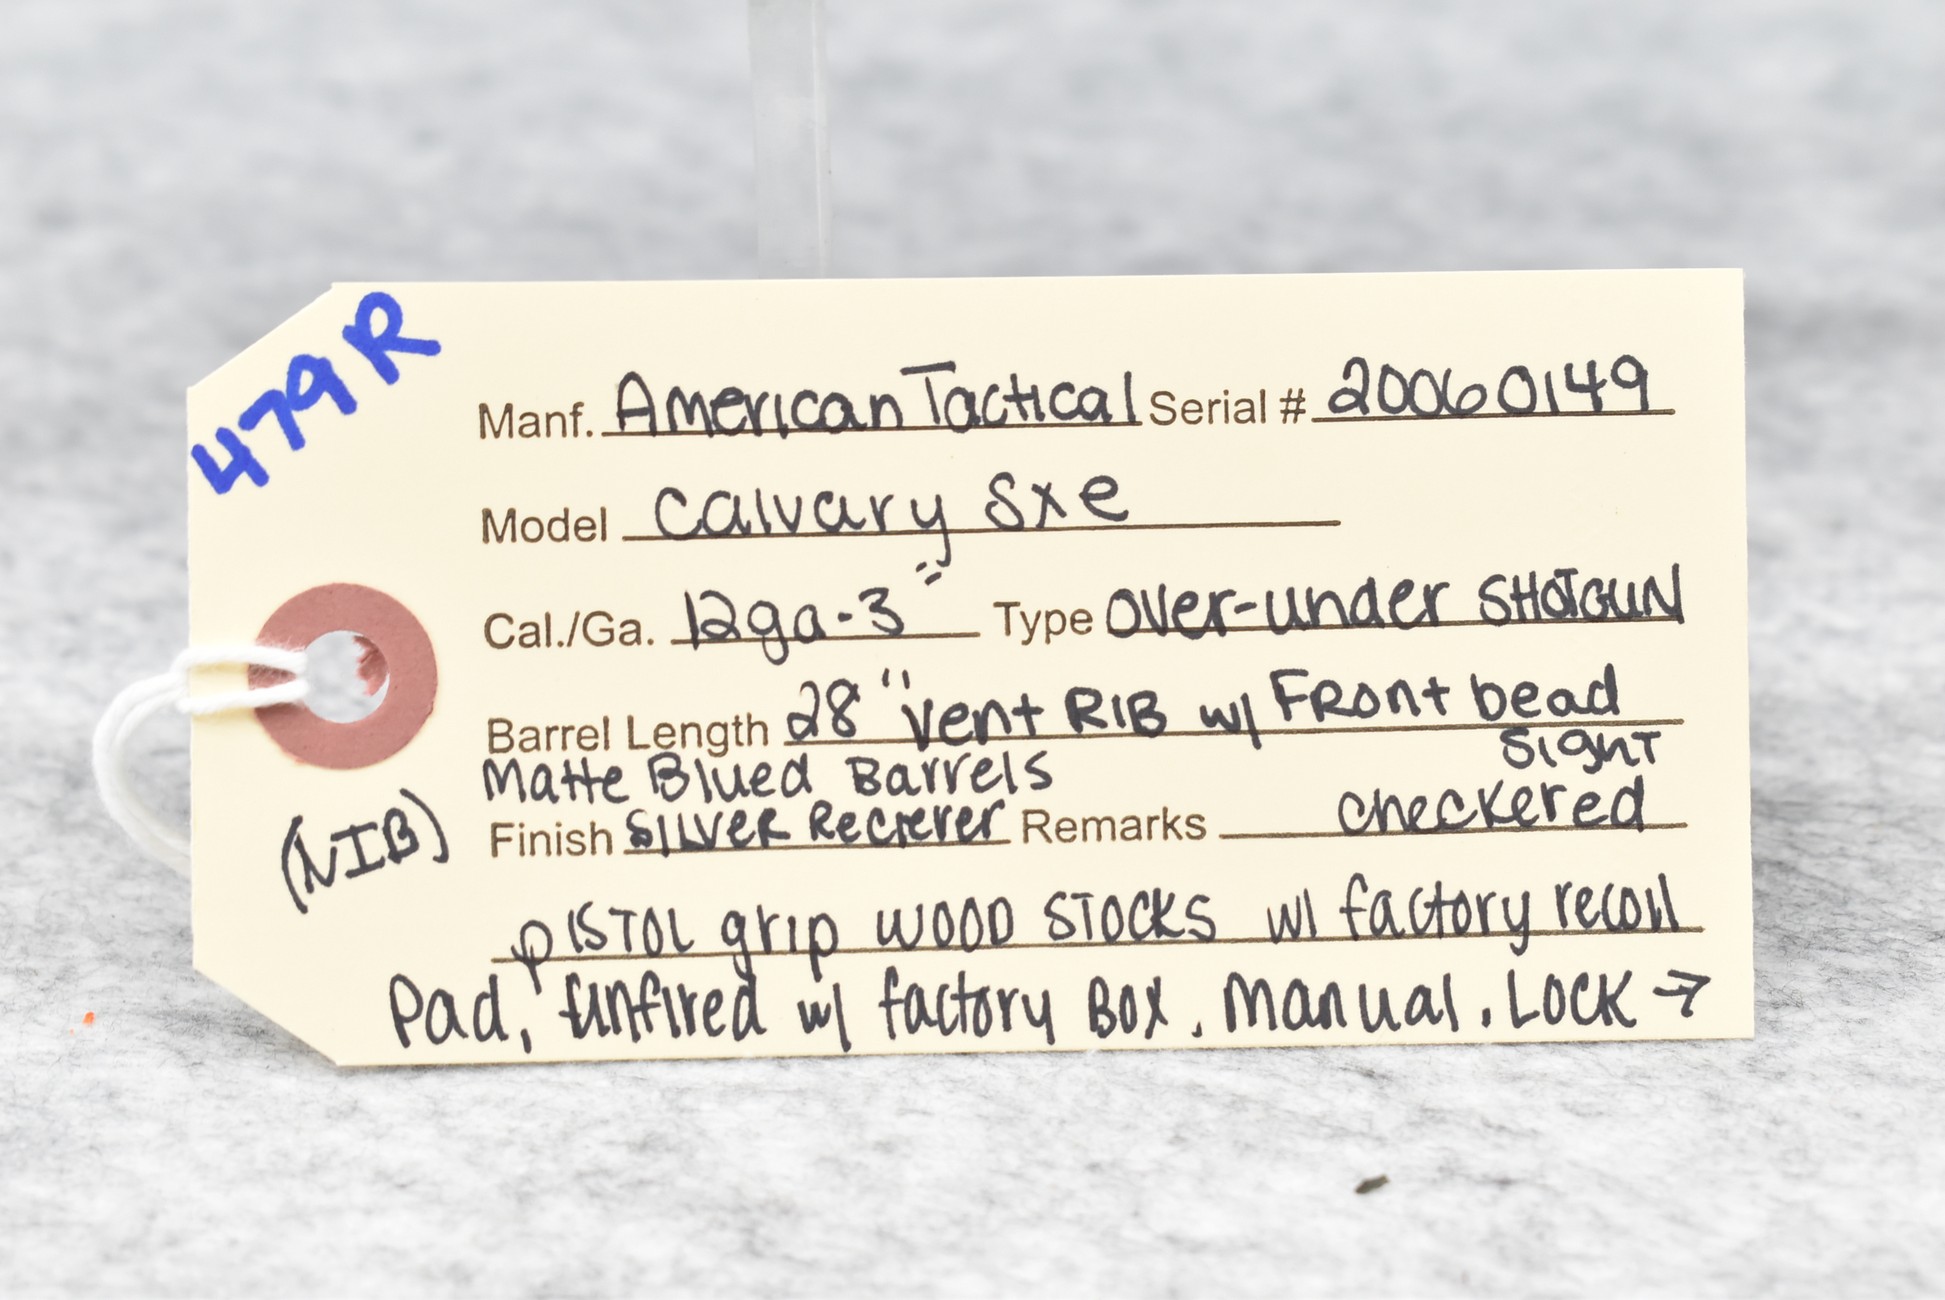 479R
Manf. American Tactical Serial # 20060149
Model Calvary Sxe
Cal./Ga. 12ga-3" Type Over-under SHOTGUN
Barrel Length 28" Vent RIB w/ Front bead
Sight
Matte Blued Barrels
Finish SILVER Reciever Remarks checkered
(NIB)
PISTOL grip WOOD STOCKS w/ factory recoil
Pad, unfired w/ factory Box, Manual, LOCK →